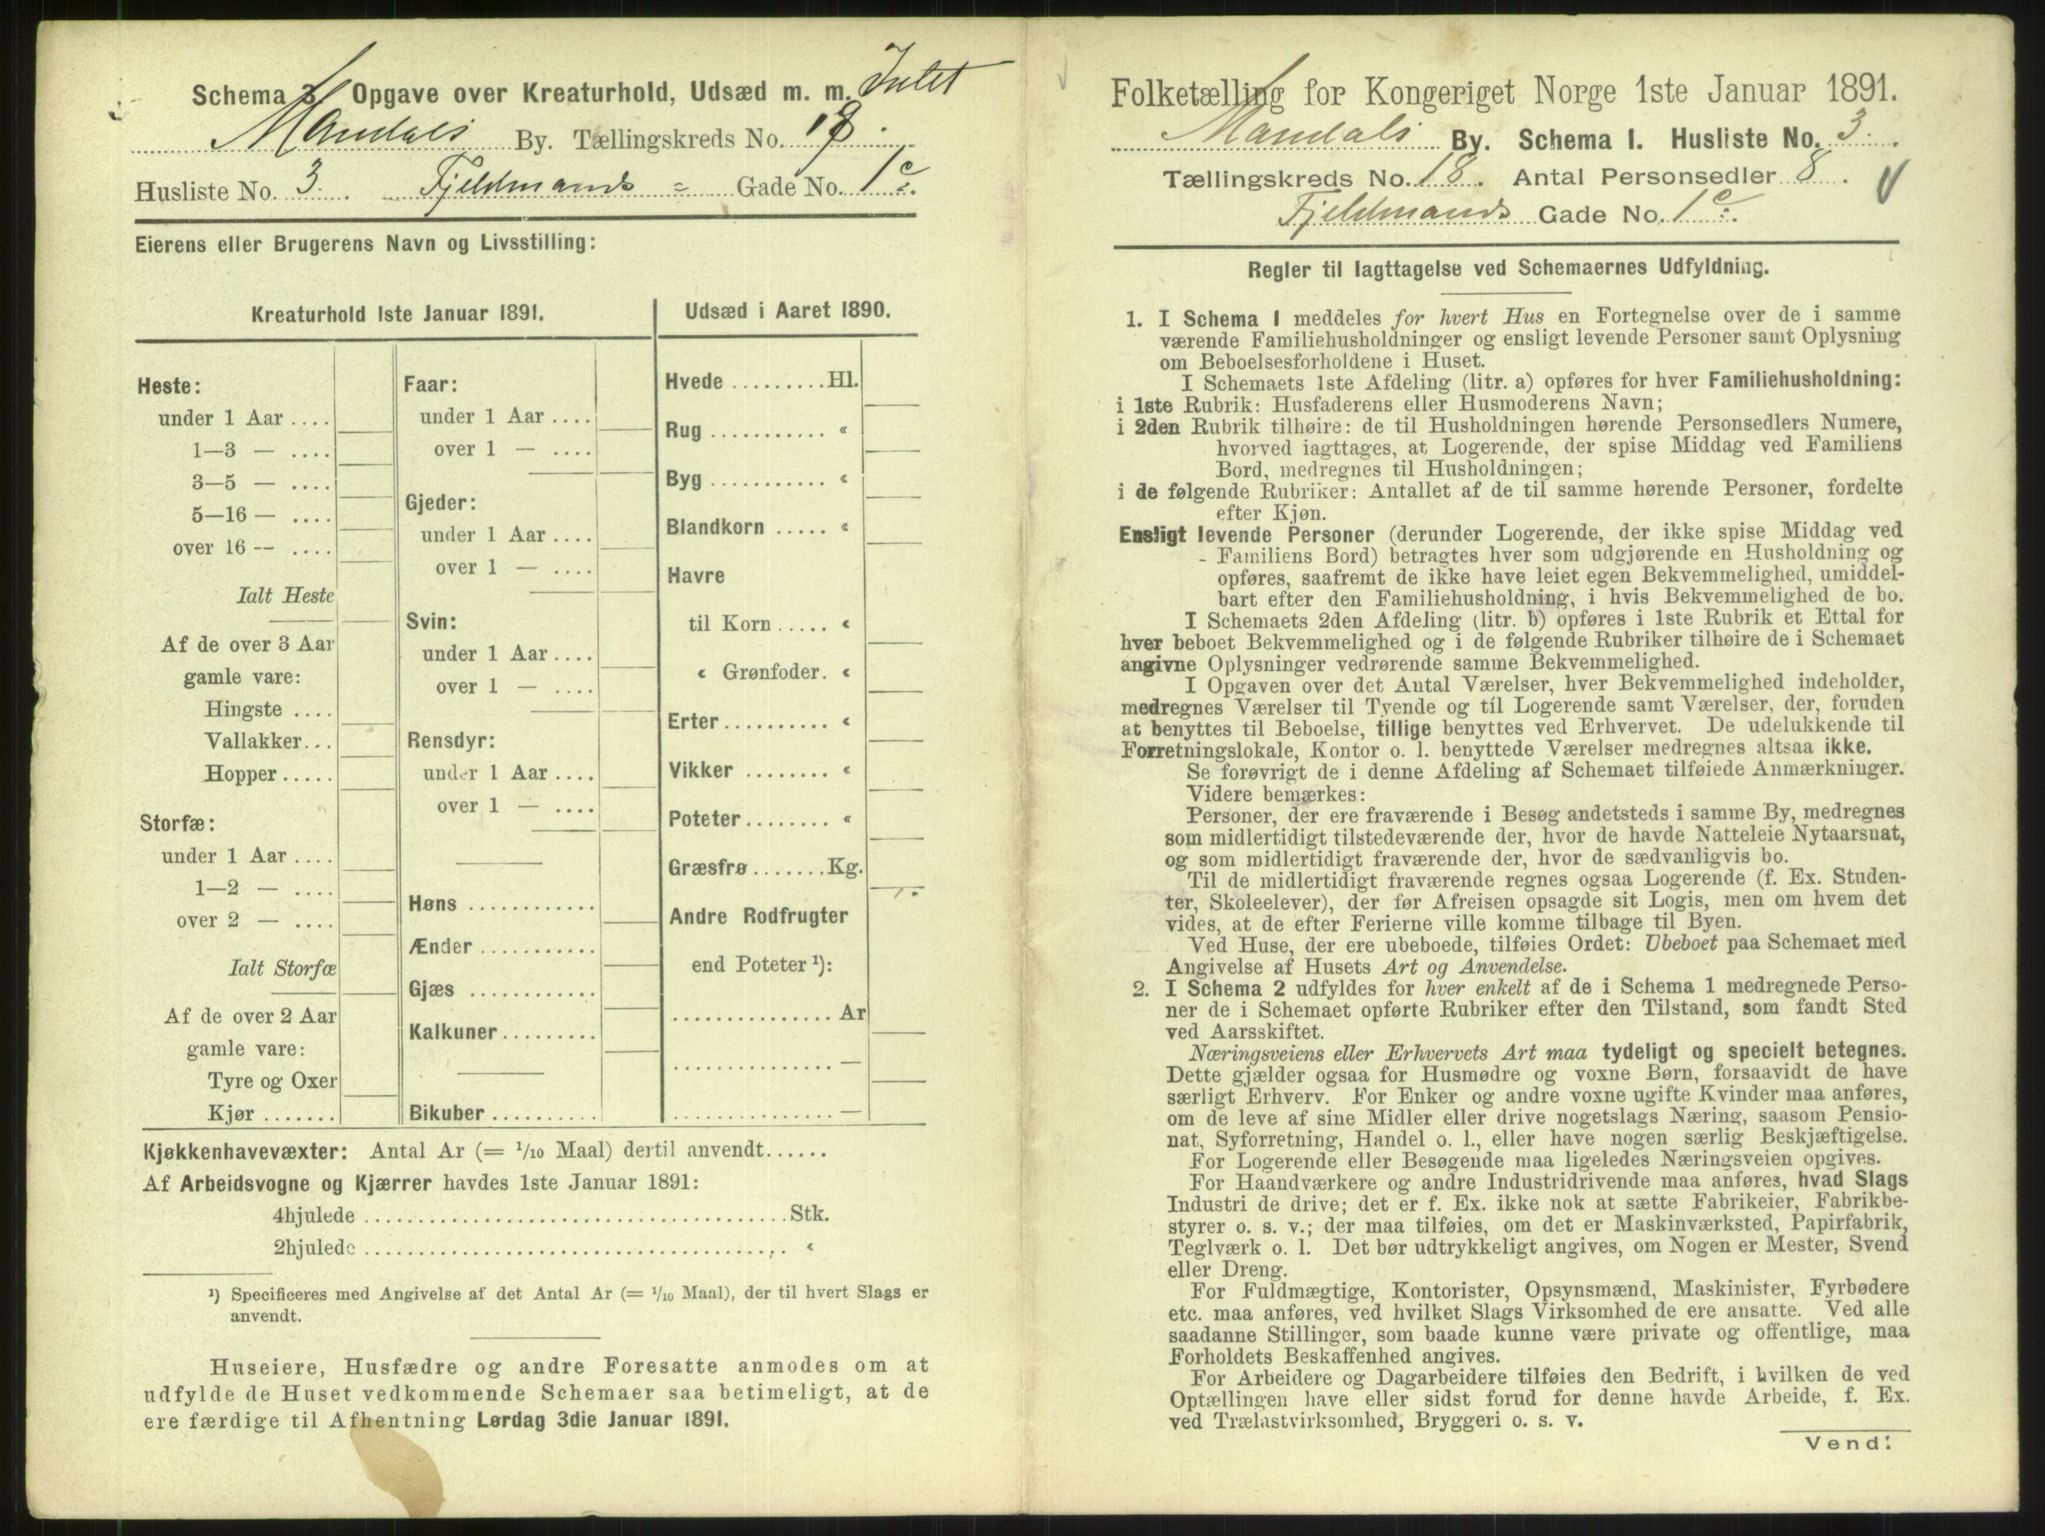 Schema 3. Opgave over Kreaturhold, Udsæd m. m. Intet
Mandals By. Tællingskreds No. 18.
Husliste No. 3. Fjeldmands - Gade No. 1c.
Eierens eller Brugerens Navn og Livsstilling:
Kreaturhold 1ste Januar 1891.
Heste:
under 1 Aar ....
1—3 — ....
3—5 — ....
5—16 — ....
over 16 — ....
Ialt Heste
Af de over 3 Aar
gamle vare:
Hingste ....
Vallakker...
Hopper.....
Storfæ:
under 1 Aar ....
1—2 — ....
over 2 — ....
Ialt Storfæ
Af de over 2 Aar
gamle vare:
Tyre og Oxer
Kjør .......
Faar:
under 1 Aar ....
over 1 — ....
Gjeder:
under 1 Aar ....
over 1 — ....
Svin:
under 1 Aar ....
over 1 — ....
Rensdyr:
under 1 Aar ....
over 1 — ....
Høns ............
Ænder ...........
Gjæs ............
Kalkuner .........
Bikuber ..........
Udsæd i Aaret 1890.
Hvede .........Hl.
Rug ........... «
Byg ........... «
Blandkorn ..... «
Havre
til Korn ..... «
« Grønfoder. «
Erter .......... «
Vikker ........ «
Poteter ........ «
Græsfrø .......Kg.
Andre Rodfrugter
end Poteter ¹):
............... Ar
............... —
............... —
Kjøkkenhavevæxter: Antal Ar (= ¹/₁₀ Maal) dertil anvendt......
Af Arbeidsvogne og Kjærrer havdes 1ste Januar 1891:
4hjulede ........................................Stk.
2hjulede ........................................ «
¹) Specificeres med Angivelse af det Antal Ar (= ¹/₁₀ Maal), der til hvert Slags er
anvendt.
Huseiere, Husfædre og andre Foresatte anmodes om at
udfylde de Huset vedkommende Schemaer saa betimeligt, at de
ere færdige til Afhentning Lørdag 3die Januar 1891.
Folketælling for Kongeriget Norge 1ste Januar 1891.
Mandals By. Schema 1. Husliste No. 3.
Tællingskreds No. 18. Antal Personsedler 8.
Fjeldmands Gade No. 1c.
Regler til Iagttagelse ved Schemaernes Udfyldning.
1. I Schema 1 meddeles for hvert Hus en Fortegnelse over de i samme
værende Familiehusholdninger og ensligt levende Personer samt Oplysning
om Beboelsesforholdene i Huset.
I Schemaets 1ste Afdeling (litr. a) opføres for hver Familiehusholdning:
i 1ste Rubrik: Husfaderens eller Husmoderens Navn;
i 2den Rubrik tilhøire: de til Husholdningen hørende Personsedlers Numere,
hvorved iagttages, at Logerende, der spise Middag ved Familiens
Bord, medregnes til Husholdningen;
i de følgende Rubriker: Antallet af de til samme hørende Personer, fordelte
efter Kjøn.
Ensligt levende Personer (derunder Logerende, der ikke spise Middag ved
Familiens Bord) betragtes hver som udgjørende en Husholdning og
opføres, saafremt de ikke have leiet egen Bekvemmelighed, umiddel-
bart efter den Familiehusholdning, i hvis Bekvemmelighed de bo.
I Schemaets 2den Afdeling (litr. b) opføres i 1ste Rubrik et Ettal for
hver beboet Bekvemmelighed og i de følgende Rubriker tilhøire de i Schemaet
angivne Oplysninger vedrørende samme Bekvemmelighed.
I Opgaven over det Antal Værelser, hver Bekvemmelighed indeholder,
medregnes Værelser til Tyende og til Logerende samt Værelser, der, foruden
at benyttes til Beboelse, tillige benyttes ved Erhvervet. De udelukkende til
Forretningslokale, Kontor o. l. benyttede Værelser medregnes altsaa ikke.
Se forøvrigt de i denne Afdeling af Schemaet tilføiede Anmærkninger.
Videre bemærkes:
Personer, der ere fraværende i Besøg andetsteds i samme By, medregnes
som midlertidigt tilstedeværende der, hvor de havde Natteleie Nytaarsnat,
og som midlertidigt fraværende der, hvor de sædvanligvis bo.
Til de midlertidigt fraværende regnes ogsaa Logerende (f. Ex. Studen-
ter, Skoleelever), der før Afreisen opsagde sit Logis, men om hvem det
vides, at de efter Ferierne ville komme tilbage til Byen.
Ved Huse, der ere ubeboede, tilføies Ordet: Ubeboet paa Schemaet med
Angivelse af Husets Art og Anvendelse.
2. I Schema 2 udfyldes for hver enkelt af de i Schema 1 medregnede Perso-
ner de i Schemaet opførte Rubriker efter den Tilstand, som fandt Sted
ved Aarsskiftet.
Næringsveiens eller Erhvervets Art maa tydeligt og specielt betegnes.
Dette gjælder ogsaa for Husmødre og voxne Børn, forsaavidt de have
særligt Erhverv. For Enker og andre voxne ugifte Kvinder maa anføres,
om de leve af sine Midler eller drive nogetslags Næring, saasom Pensio-
nat, Syforretning, Handel o. l., eller have nogen særlig Beskjæftigelse.
For Logerende eller Besøgende maa ligeledes Næringsveien opgives.
For Haandværkere og andre Industridrivende maa anføres, hvad Slags
Industri de drive; det er f. Ex. ikke nok at sætte Fabrikeier, Fabrikbe-
styrer o. s. v.; der maa tilføies, om det er Maskinværksted, Papirfabrik,
Teglværk o. l. Det bør udtrykkeligt angives, om Nogen er Mester, Svend
eller Dreng.
For Fuldmægtige, Kontorister, Opsynsmænd, Maskinister, Fyrbødere
etc. maa anføres, ved hvilket Slags Virksomhed de ere ansatte. Ved alle
saadanne Stillinger, som baade kunne være private og offentlige, maa
Forholdets Beskaffenhed angives.
For Arbeidere og Dagarbeidere tilføies den Bedrift, i hvilken de ved
Optællingen have eller sidst forud for denne havde Arbeide, f. Ex.
ved Trælastvirksomhed, Bryggeri o. s. v.
Vend!